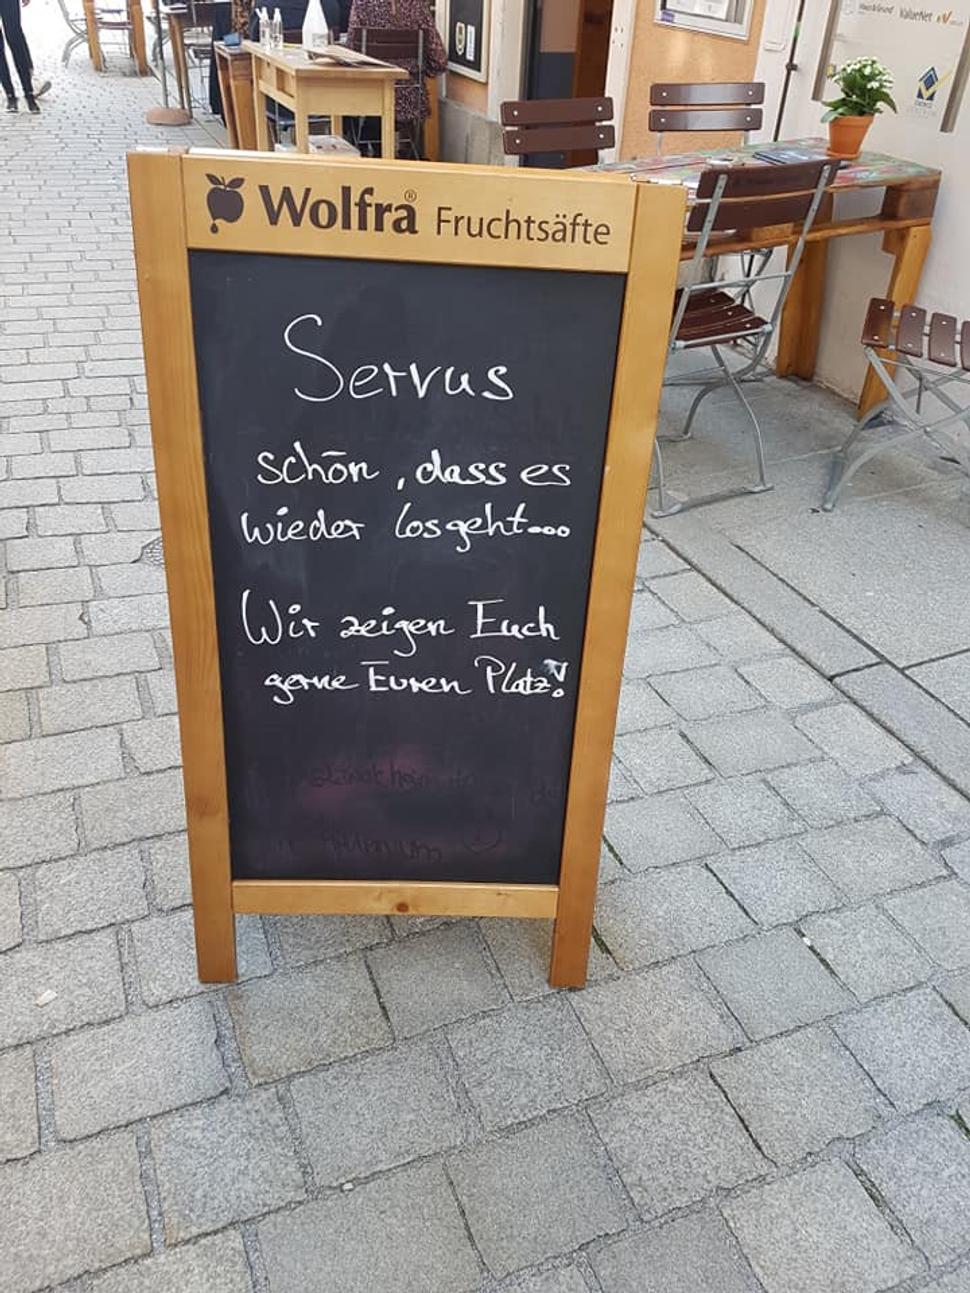 Wolfra® Fruchtsäfte
Servus
schön, dass es
wieder losgeht...
Wir zeigen Euch
gerne Euren Platz!
ValueNet